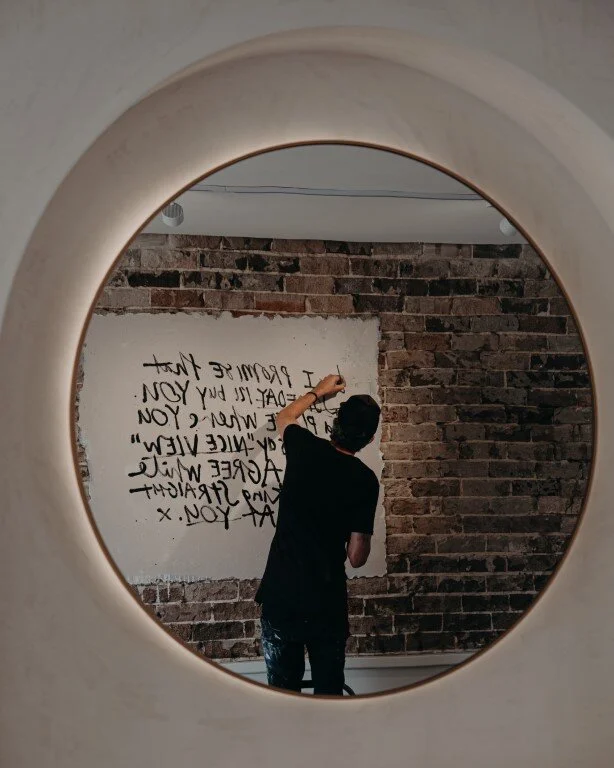 I PROMISE that
I'll buy YOU.
A Where YOU
SAY "NICE VIEW"
AGREE While
STRAIGHT
AT YOU. x